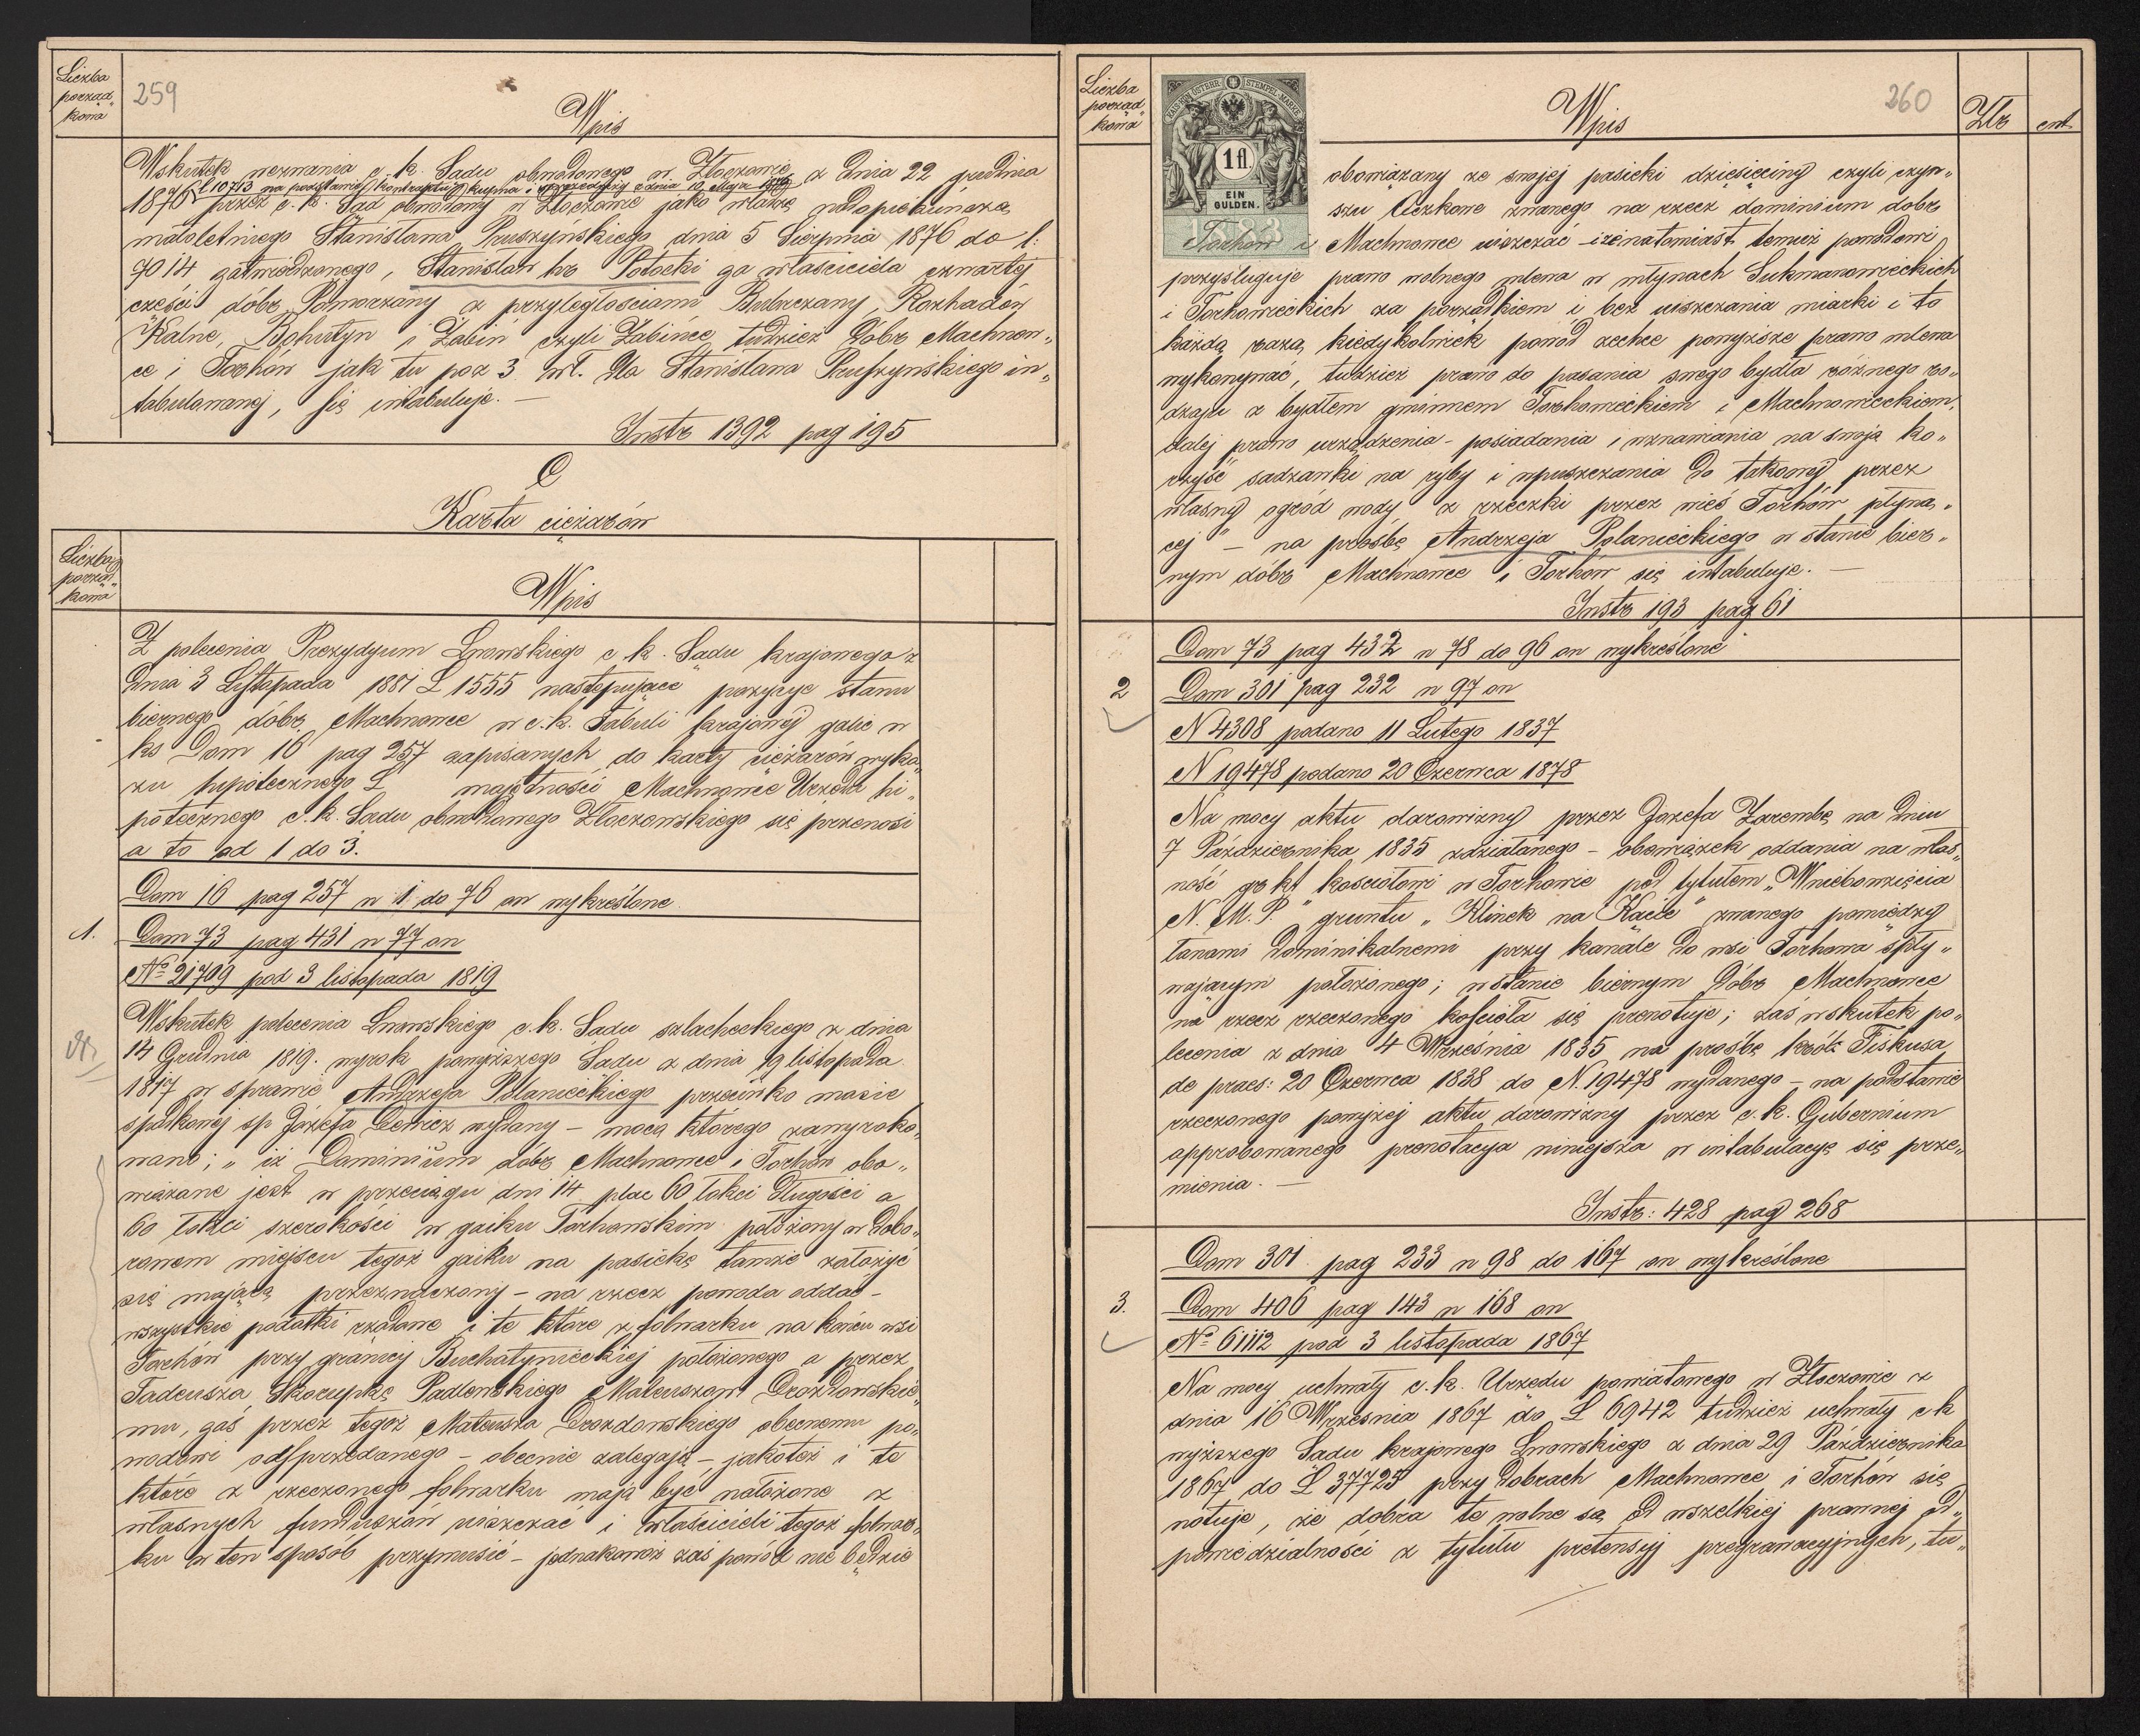 Liczba
porząd„
kowa
259
Wpis
Wskutek wezwania c. k. Sądu obwodowego w Złoczowie z dnia 22 grudnia
l 10713 na podstawie kontraktu kupna i sprzedaży z dnia 10 Maja
1876 przez c. k. Sąd obwodowy w Złoczowie jako władzę nadopiekuńczą
małoletniego Stanisława Pruszyńskiego dnia 5 Sierpnia 1876 do l:
7014 zatwierdzonego, Stanisław hr Potocki za właściciela czwartej
części dóbr Pomorzany z przyległościami Bubszczany, Rozhadów
Kalne, Bohutyn i Żabin czyli Żabince tudzież Dóbr Machnow„
ce i Torhów jak tu poz 3 wł. dla Stanisława Pruszynskiego in„
tabulowanej, się intabuluje. —
Instr 1392 pag 195
C
Karta ciężarów
Liczba
porząd„
kowa
Wpis
Z polecenia Prezydyum Lwowskiego c. k. Sądu krajowego z
dnia 3 Listopada 1881 L 1555 następujące pozycye stanu
biernego dóbr Machnowce w c. k. Tabuli krajowej galic w
ks Dom 16 pag 257 zapisanych do karty ciężarów wyka„
zu hypotecznego L majętności Machnowce Urzędu hi„
potecznego c. k. Sądu obwodowego Złoczowskiego się przenosi
a to od 1 do 3.
Dom 16 pag 257 n 1 do 76 on wykreślone.
1.
Dom 73 pag 431 n 77 on
No 21709 pod 3 listopada 1819
Wskutek polecenia Lwowskiego c. k. Sądu szlacheckiego z dnia
14 Grudnia 1819. wyrok powyższego Sądu z dnia 19 listopada
1817 w sprawie Andrzeja Polanieckiego przeciwko masie
spadkowej sp Józefa wydany – mocą którego zawyroko„
wano; „ iż Dominium dóbr Machnowce i Torhów obo„
wiązane jest w przeciągu dni 14 plac 60 łokci długości a
60 łokci szerokości w gaiku Torhowskim położony w dobo„
rowem miejscu tegoż gaiku na pasiekę tamże założyć
się mającą przeznaczony – na rzecz powoda oddać –
wszystkie podatki rządowe i te które z folwarku na końcu wsi
Torhów przy granicy Buchatynieckiej położonego a przez
Tadeusza Skarupkę Padlewskiego Mateuszowi Drozdowskie„
mu, zaś przez tegoż Mateusza Drozdowskiego obecnemu po„
wodowi odsprzedanego – obecnie zalegają – jakoteż i te
które z rzeczonego folwarku mają być nałożone z
własnych funduszów uiszczać i właścicieli tegoż folwar„
ku w ten sposób przymusić – jednakowoż zaś powód nie będzie
Liczba
porząd„
kowa
KAIS. KÖN. ÖSTERR. STEMPEL-MARKE
1 fl.
EIN
GULDEN.
1883
Wpis
260
Złr
cnt.
obowiązany ze swojej pasieki dziesięciny czyli czyn„
szu Oczkowe zwanego na rzecz dominium dobr
Torhów i Machnowce uiszczać – iż natomiast temuż powodowi
przysługuje prawo wolnego mlewa w młynach Sukmanowieckich
i Torhowieckich za porządkiem i bez uiszczania miarki i to
każdą razą kiedykolwiek powód zechce powyższe prawo mlewa
wykonywać, tudzież prawo do pasania swego bydła różnego ro„
dzaju z bydłem gminnem Torhowieckiem i Machnowieckiem,
dalej prawo urządzenia – posiadania i wznawiania na swoją ko„
rzyść sadzawki na ryby i wpuszczania do takowej przez
własny ogród wody z rzeczki przez wieś Torhów płyną„
cej “ – na prosbę Andrzeja Polanieckiego w stanie bier„
nym dóbr Machnowce i Torhów się intabuluje. —
Instr 193 pag 61
Dom 73 pag 432 n 78 do 96 on wykreślone
2
Dom 301 pag 232 n 97 on
N 4308 podano 11 Lutego 1837
N 19478 podano 20 Czerwca 1878
Na mocy aktu darowizny przez Józefa Zarembę na dniu
7 Października 1835 zdziałanego – obowiązek oddania na włas„
ność gr kt kościołowi w Torhowie pod tytułem „Wniebowzięcia
N. M. P. “ gruntu „ Klinek na Kącie“ zwanego pomiędzy
łanami dominikalnemi przy kanale do wsi Torhowa spły„
wającym położonego; w stanie biernym Dóbr Machnowce
na rzecz rzeczonego kościoła się prenotuje; zaś wskutek po„
lecenia z dnia 4 Września 1835 na prośbę król: Fiskusa
de praes: 20 Czerwca 1838 do N. 19478 wydanego – na podstawie
rzeczonego powyżej aktu darowizny przez c. k. Gubernium
approbowanego prenotacya niniejsza w intabulacyę się prze„
mienia. —
Instr: 428 pag 268
Dom 301 pag 233 n 98 do 167 on wykreślone
3.
Dom 406 pag 143 n 168 on
No 61112 pod 3 listopada 1867
Na mocy uchwały c. k. Urzędu powiatowego w Złoczowie z
dnia 16 Września 1867 do L 6942 tudzież uchwały c k
wyższego Sądu krajowego Lwowskiego z dnia 29 Października
1867 do L 37725 przy dobrach Machnowce i Torhów się
notuje, że dobra te wolne są od wszelkiej prawnej od„
powiedzialności z tytułu pretensyj pregrawacyjnych, tu„